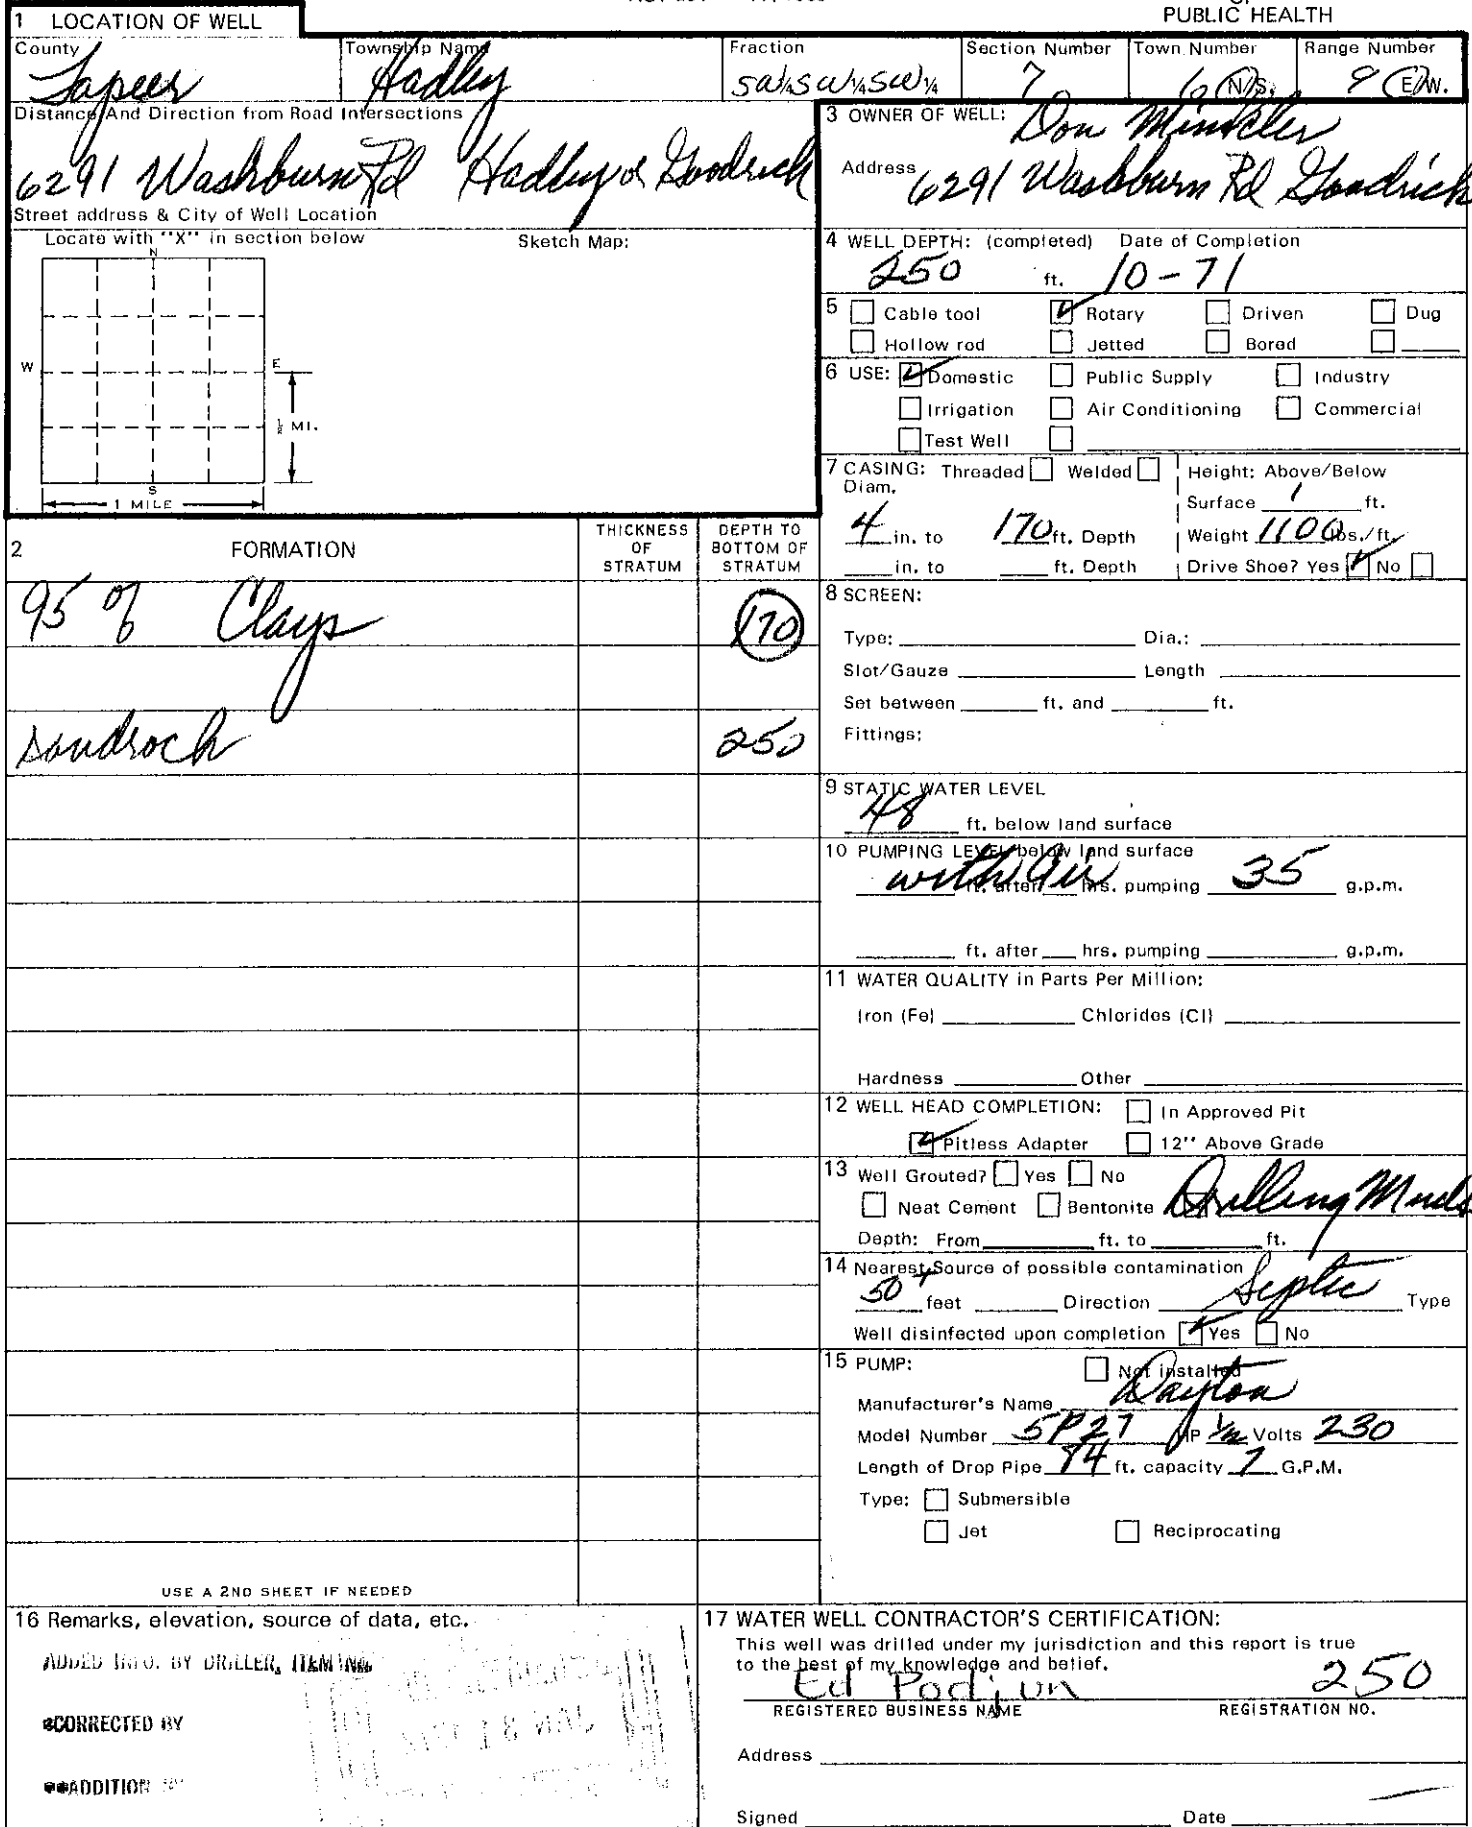 PUBLIC HEALTH
1 LOCATION OF WELL
County Township Name Fraction Section Number Town Number Range Number
Lapeer Hadley SW¼SW¼SW¼ 7 6 N/S. 9 E/W.
Distance And Direction from Road Intersections
6291 Washburn Rd Hadley or Goodrich
Street address & City of Well Location
Locate with "X" in section below Sketch Map:
N
W E
½ MI.
S
1 MILE
2 FORMATION THICKNESS OF STRATUM DEPTH TO BOTTOM OF STRATUM
95 % Clays 170
sandrock 250
USE A 2ND SHEET IF NEEDED
3 OWNER OF WELL: Don Minkler
Address 6291 Washburn Rd Goodrich
4 WELL DEPTH: (completed) Date of Completion
250 ft. 10-71
5 Cable tool Rotary Driven Dug
Hollow rod Jetted Bored
6 USE: Domestic Public Supply Industry
Irrigation Air Conditioning Commercial
Test Well
7 CASING: Threaded Welded Height: Above/Below
Diam.
Surface 1 ft.
4 in. to 170 ft. Depth Weight 1100 lbs./ft.
in. to ft. Depth Drive Shoe? Yes No
8 SCREEN:
Type: Dia.:
Slot/Gauze Length
Set between ft. and ft.
Fittings:
9 STATIC WATER LEVEL
48 ft. below land surface
10 PUMPING LEVEL below land surface
with air ft. after hrs. pumping 35 g.p.m.
ft. after hrs. pumping g.p.m.
11 WATER QUALITY in Parts Per Million:
Iron (Fe) Chlorides (Cl)
Hardness Other
12 WELL HEAD COMPLETION: In Approved Pit
Pitless Adapter 12'' Above Grade
13 Well Grouted? Yes No
Neat Cement Bentonite Drilling Muds
Depth: From ft. to ft.
14 Nearest Source of possible contamination
50+ feet Direction Septic Type
Well disinfected upon completion Yes No
15 PUMP: Not installed
Manufacturer's Name Dayton
Model Number 5P27 HP 1/2 Volts 230
Length of Drop Pipe 84 ft. capacity 7 G.P.M.
Type: Submersible
Jet Reciprocating
16 Remarks, elevation, source of data, etc.
ADDED INFO. BY DRILLER, ITEM NO.
*CORRECTED BY
**ADDITION BY
17 WATER WELL CONTRACTOR'S CERTIFICATION:
This well was drilled under my jurisdiction and this report is true
to the best of my knowledge and belief.
Ed Podjun 250
REGISTERED BUSINESS NAME REGISTRATION NO.
Address
Signed Date